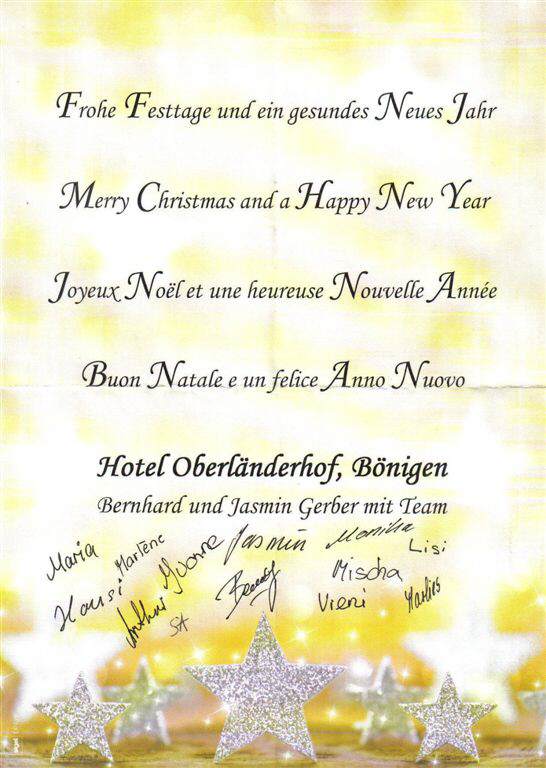 Frohe Festtage und ein gesundes Neues Jahr
Merry Christmas and a Happy New Year
Joyeux Noël et une heureuse Nouvelle Année
Buon Natale e un felice Anno Nuovo
Hotel Oberländerhof, Bönigen
Bernhard und Jasmin Gerber mit Team
Maria Marlène Yvonne Jasmin Monika Lisi
Hansi Mischa
Vreni Marlies